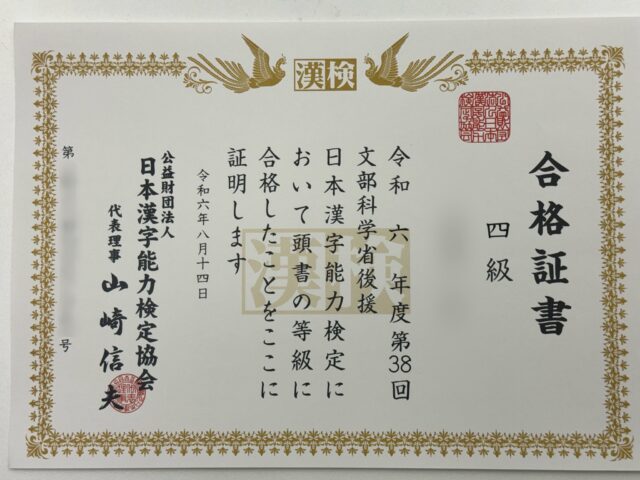 漢検
合格証書
四級
令和 六 年度第38回
文部科学省後援
日本漢字能力検定に
おいて頭書の等級に
合格したことをここに
証明します
漢検
令和六年八月十四日
公益財団法人
日本漢字能力検定協会
代表理事 山崎信夫
第 号